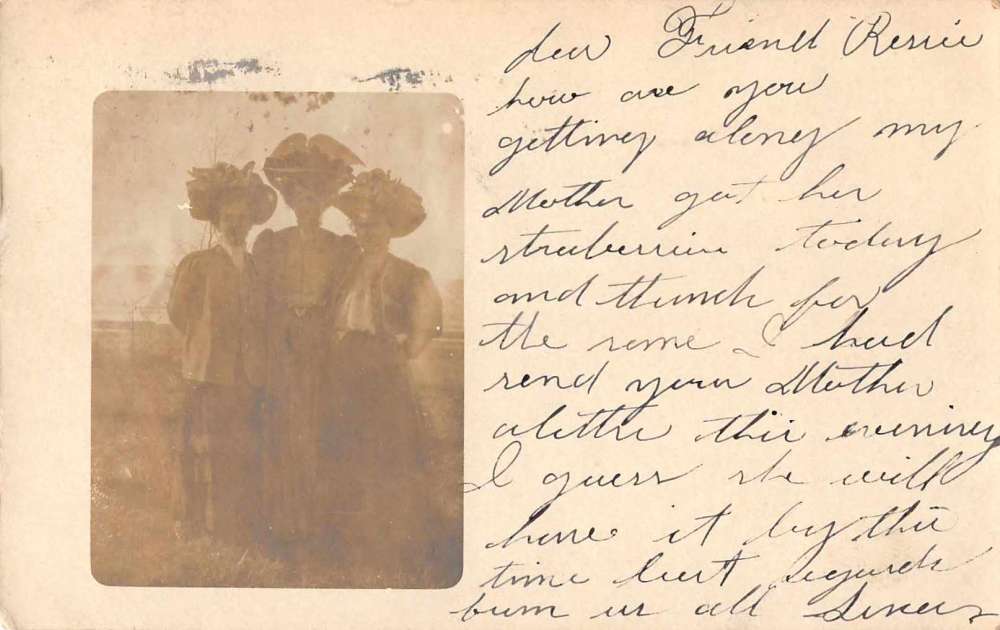 dear Friend Ressie
how are you
getting along my
Mother got her
strawberries today
and thanck for
the same I had
send your Mother
aletter this evening
I guess she will
have it by this
time best regards
from us all